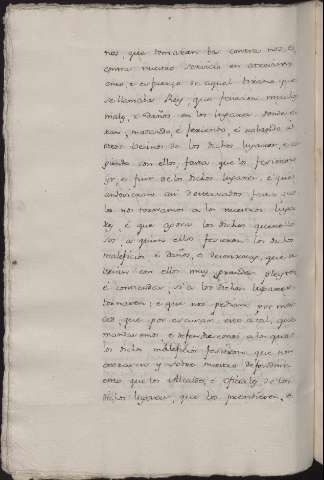 nes, que tomaran la contra nos, e
contra nuestro servicio en atrevimi
ento, e esfuerzo de aquel tirano que
se llamaba Rey, que ficieron mucho
malo, e daños en los lugares donde e
ran, matando, e firiendo, e robando a
otros vecinos de los dichos lugares, e
con ellos, fasta que los ficieron
e fuir de los dichos lugares, e que
andovieron asi desterrados fasta que
los nos tornamos a los nuestros luga
res, e que agora los dichos querello
sos, a quien ellos ficieron los dichos
maleficios, e daños, e desonras, que a
vrian con ellos muy grandes pleytos
e contiendas, si a los dichos lugares
tornasen, e que nos pedian por mer
ced que por escusar esto atal, que
mandasemos e defendiesemos a los que
los dichos maleficios ficieron que non
entrasen y sobre nuestro defendimi
ento que los Alcaldes, e oficiales de los
dichos lugares, que los prendiesen, e